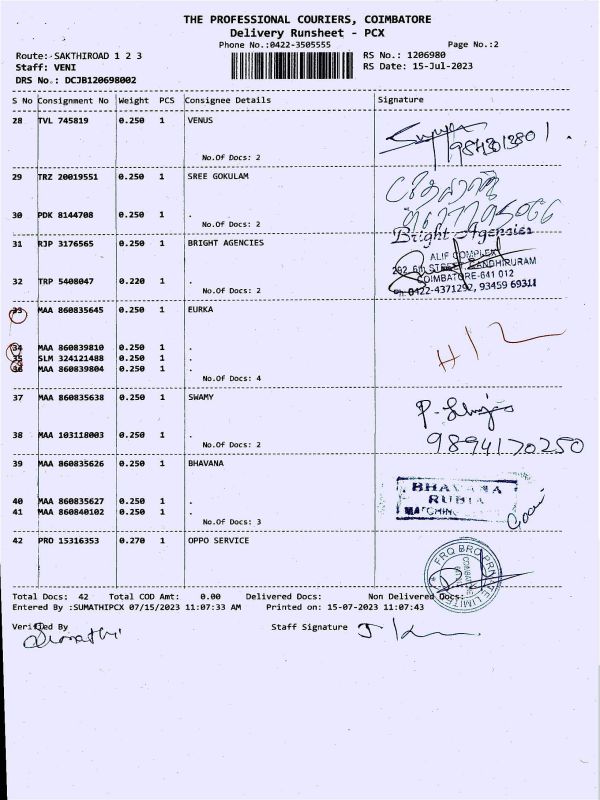 THE PROFESSIONAL COURIERS, COIMBATORE
Delivery Runsheet - PCX
Phone No.:0422-3505555
Page No.:2
Route: SAKTHIROAD 1 2 3
RS No.: 1206980
Staff: VENI
RS Date: 15-Jul-2023
DRS No.: DCJB120698002
S No Consignment No Weight PCS Consignee Details Signature
28 TVL 745819 0.250 1 VENUS
No.Of Docs: 2
29 TRZ 20019551 0.250 1 SREE GOKULAM
30 PDK 8144708 0.250 1 .
No.Of Docs: 2
Bright Agencies
31 RJP 3176565 0.250 1 BRIGHT AGENCIES
ALIF COMPLEX
202, 6th STREET, GANDHIRURAM
COIMBATORE-641 012
32 TRP 5408047 0.220 1 .
Ph: 0422-4371292, 93459 69311
No.Of Docs: 2
33 MAA 860835645 0.250 1 EURKA
34 MAA 860839810 0.250 1 .
35 SLM 324121488 0.250 1 .
36 MAA 860839804 0.250 1 .
No.Of Docs: 4
37 MAA 860835638 0.250 1 SWAMY
38 MAA 103118003 0.250 1 .
9894170250
No.Of Docs: 2
39 MAA 860835626 0.250 1 BHAVANA
BHAVANA
40 MAA 860835627 0.250 1 .
RUBIA
41 MAA 860840102 0.250 1 .
MATCHING
No.Of Docs: 3
42 PRO 15316353 0.270 1 OPPO SERVICE
Total Docs: 42 Total COD Amt: 0.00 Delivered Docs: Non Delivered Docs:
Entered By :SUMATHIPCX 07/15/2023 11:07:33 AM Printed on: 15-07-2023 11:07:43
Verified By
Sumathi
Staff Signature